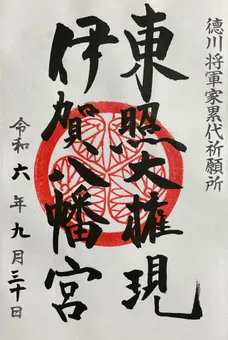 徳川将軍家累代祈願所
東照大権現
伊賀八幡宮
令和六年九月三十日